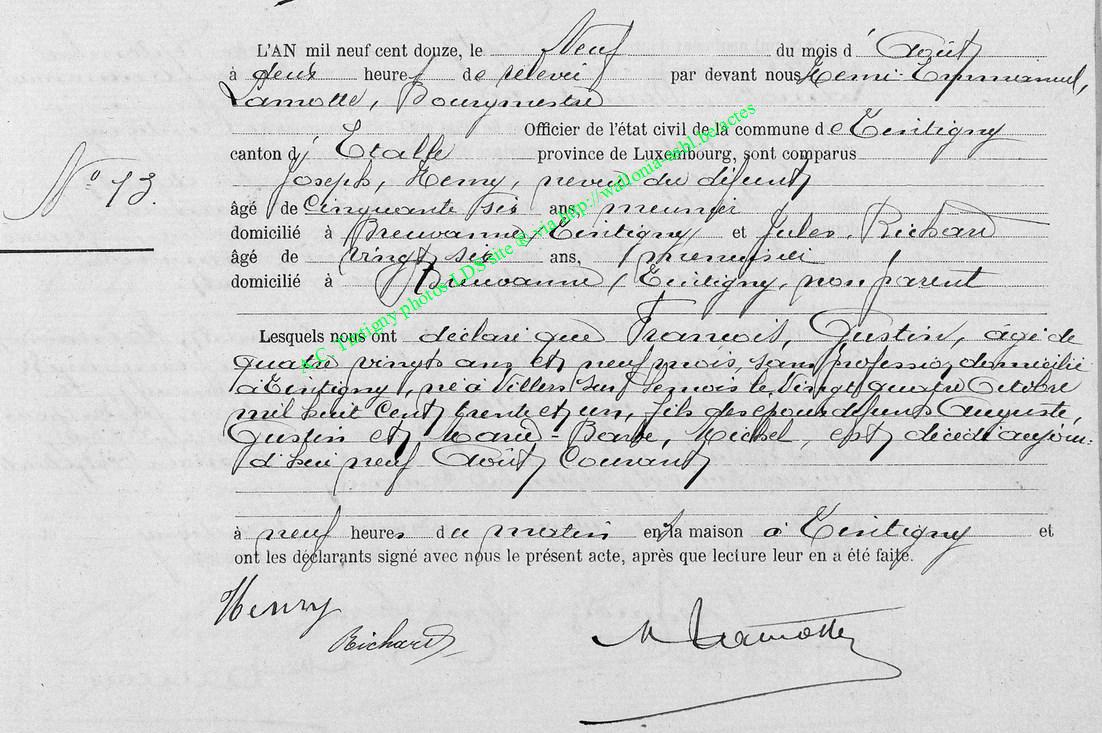 L'AN mil neuf cent douze, le Neuf du mois d' Août
à deux heures de relevée par devant nous Remi Emmanuel,
Lamotte, Bourgmestre
Officier de l'état civil de la commune de Tintigny
canton d' Etalle province de Luxembourg, sont comparus
N° 13.
Joseph, Henry, neveu du défunt
âgé de Cinquante six ans, meunier
domicilié à Breuvanne, Tintigny et Jules, Richard
âgé de vingt six ans, menuisier
domicilié à Breuvanne, Tintigny, non parent
Lesquels nous ont déclaré que François, Gustin, âgé de
quatre vingts ans et neuf mois, sans profession, domicilié
à Tintigny, né à Villers sur Semois le vingt quatre Octobre
mil huit cent trente et un, fils des époux défunts Auguste,
Gustin et Marie-Barbe, Michel, est décédé aujour-
d'hui neuf Août Courant
à neuf heures du matin en sa maison à Tintigny et
ont les déclarants signé avec nous le présent acte, après que lecture leur en a été faite.
Henry
Richard
Lamotte
A.C. Tintigny photos LDS site ® via http://wallonia-sahl.be/actes